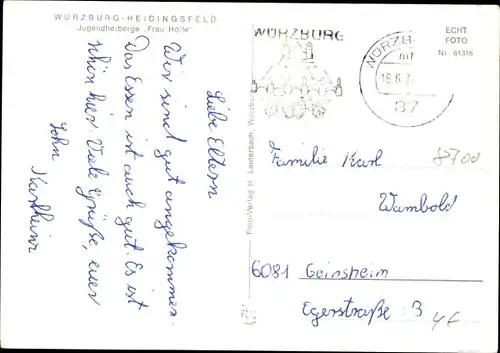 WÜRZBURG-HEIDINGSFELD
Jugendherberge „Frau Holle"
Liebe Eltern
Wir sind gut angekommen.
Das Essen ist auch gut. Es ist
schön hier. Viele Grüße, euer
Sohn
Karlheinz
Foto-Verlag H. Lauterbach, Würzburg
WÜRZBURG
WÜRZB
18.6.7
87
ECHT
FOTO
Nr. 61318
Familie Karl
8700
Wambold
6081 Geinsheim
Egerstraße 3